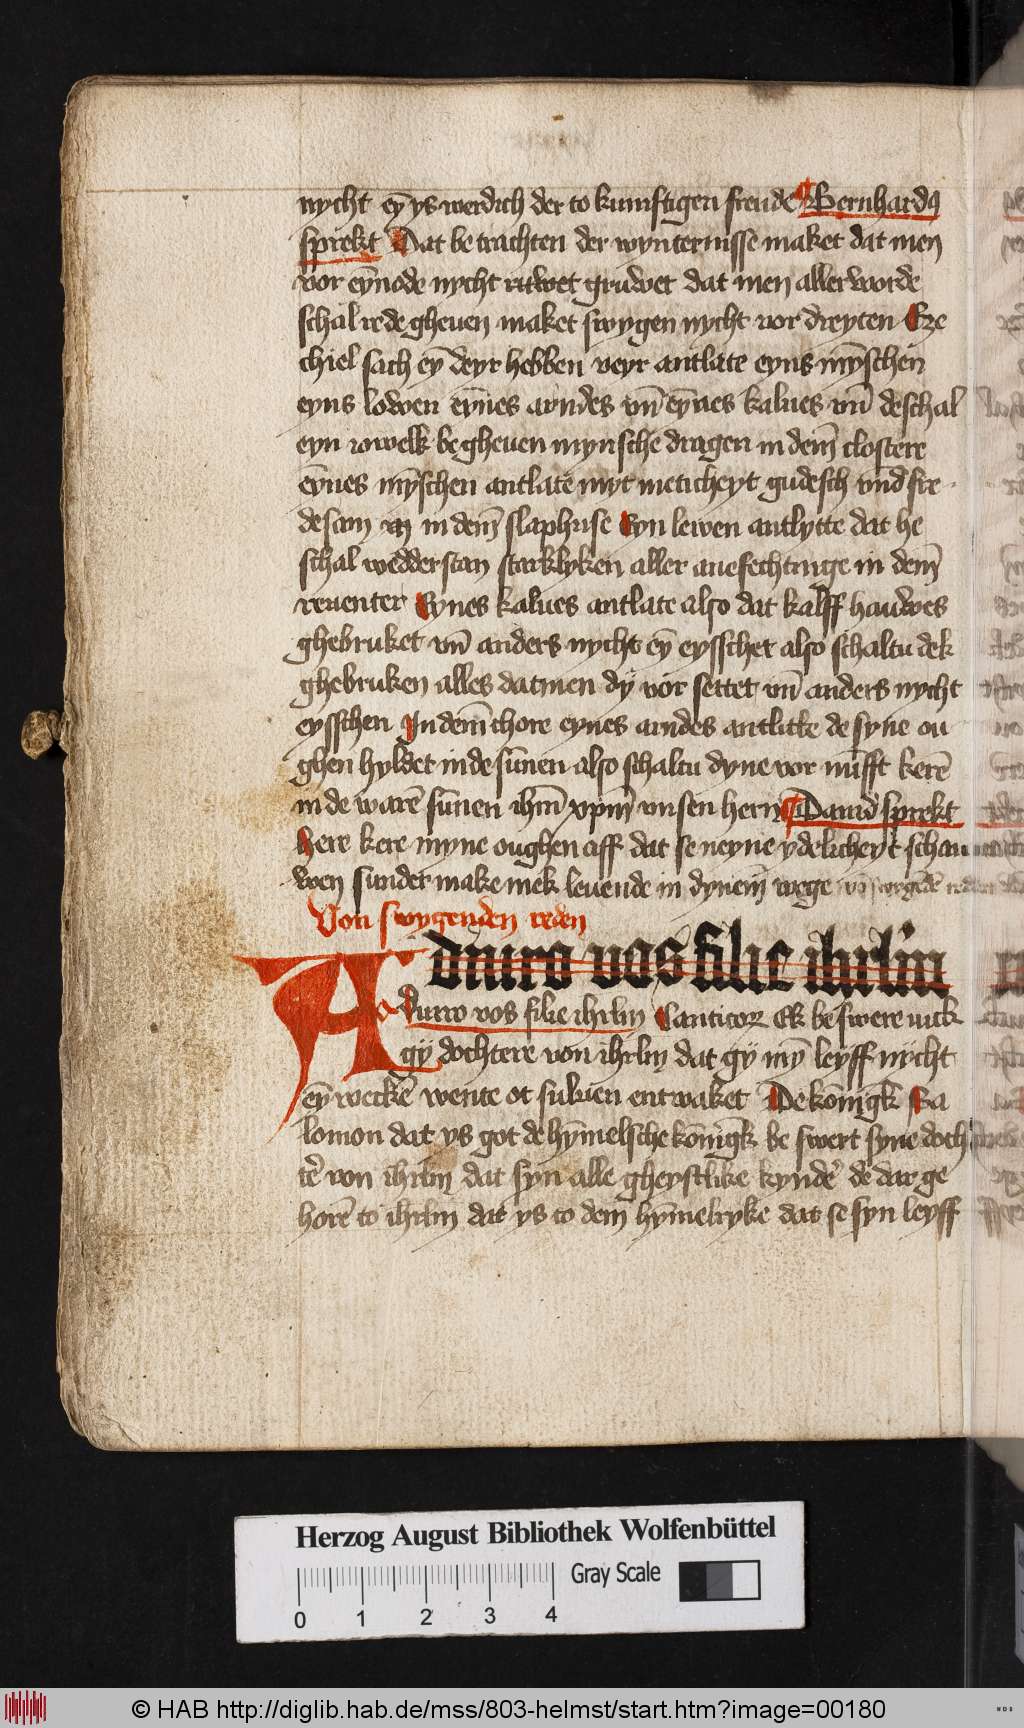 nycht eȳ ys werdich der to kumftigen freude Bernhardꝯ
sprekt Dat be trachten der wynternisse maket dat men
vor eẏnode nycht ruwet gruwet dat men aller worde
schal rede gheuen maket swygen nycht vor dreyten Eze
chiel sach eȳ deyr hebben veyr antlate eyns mȳschen
eyns lowen eynes arndes vn̄ eynes kalues vn̄ de schal
eyn iowelk begheuen mynsche dragen in dem clostere
eynes mȳschen antlate myt meticheyt gudesch vnd fre
desam in dem slaphuse Eyn lewen antlytte dat he
schal wedderstan starklyken aller anefechtinge in dem
reuenter Eynes kalues antlate also dat kalff hauwes
ghebruket vn̄ anders nycht eȳ eysschet also schaltu dek
ghebruken alles datmen dÿ vor settet vn̄ anders nycht
eysschen In dem chore eynes arndes antlate de syne ou
ghen hyldet in de sunen also schaltu dyne vor nufft kerē
in de warē sunen ihm̄ xp̄m vnsen hern Dauid sprekt
here kere myne oughen aff dat se neyne ydelicheyt schau
wen sunder make mek leuende in dynem wege
Von swygenden reden
Adiuro vos filie ihrlm̄
Adiuro vos filie ihrlm Canticoꝝ Ek be swere iuck
gÿ dochtere von ihrlm dat gÿ mȳ leyff nÿcht
eȳ weckē wente ot suluen entwaket De kōnigk Sa
lomon dat ys got de hȳmelsche kōnigk be swert syne doch
tē von ihrlm dat syn alle gheystlike kyndē de dar ge
horē to ihrlm dat ys to dem hȳmelryke dat se syn leyff
Herzog August Bibliothek Wolfenbüttel
Gray Scale
0 1 2 3 4
© HAB http://diglib.hab.de/mss/803-helmst/start.htm?image=00180